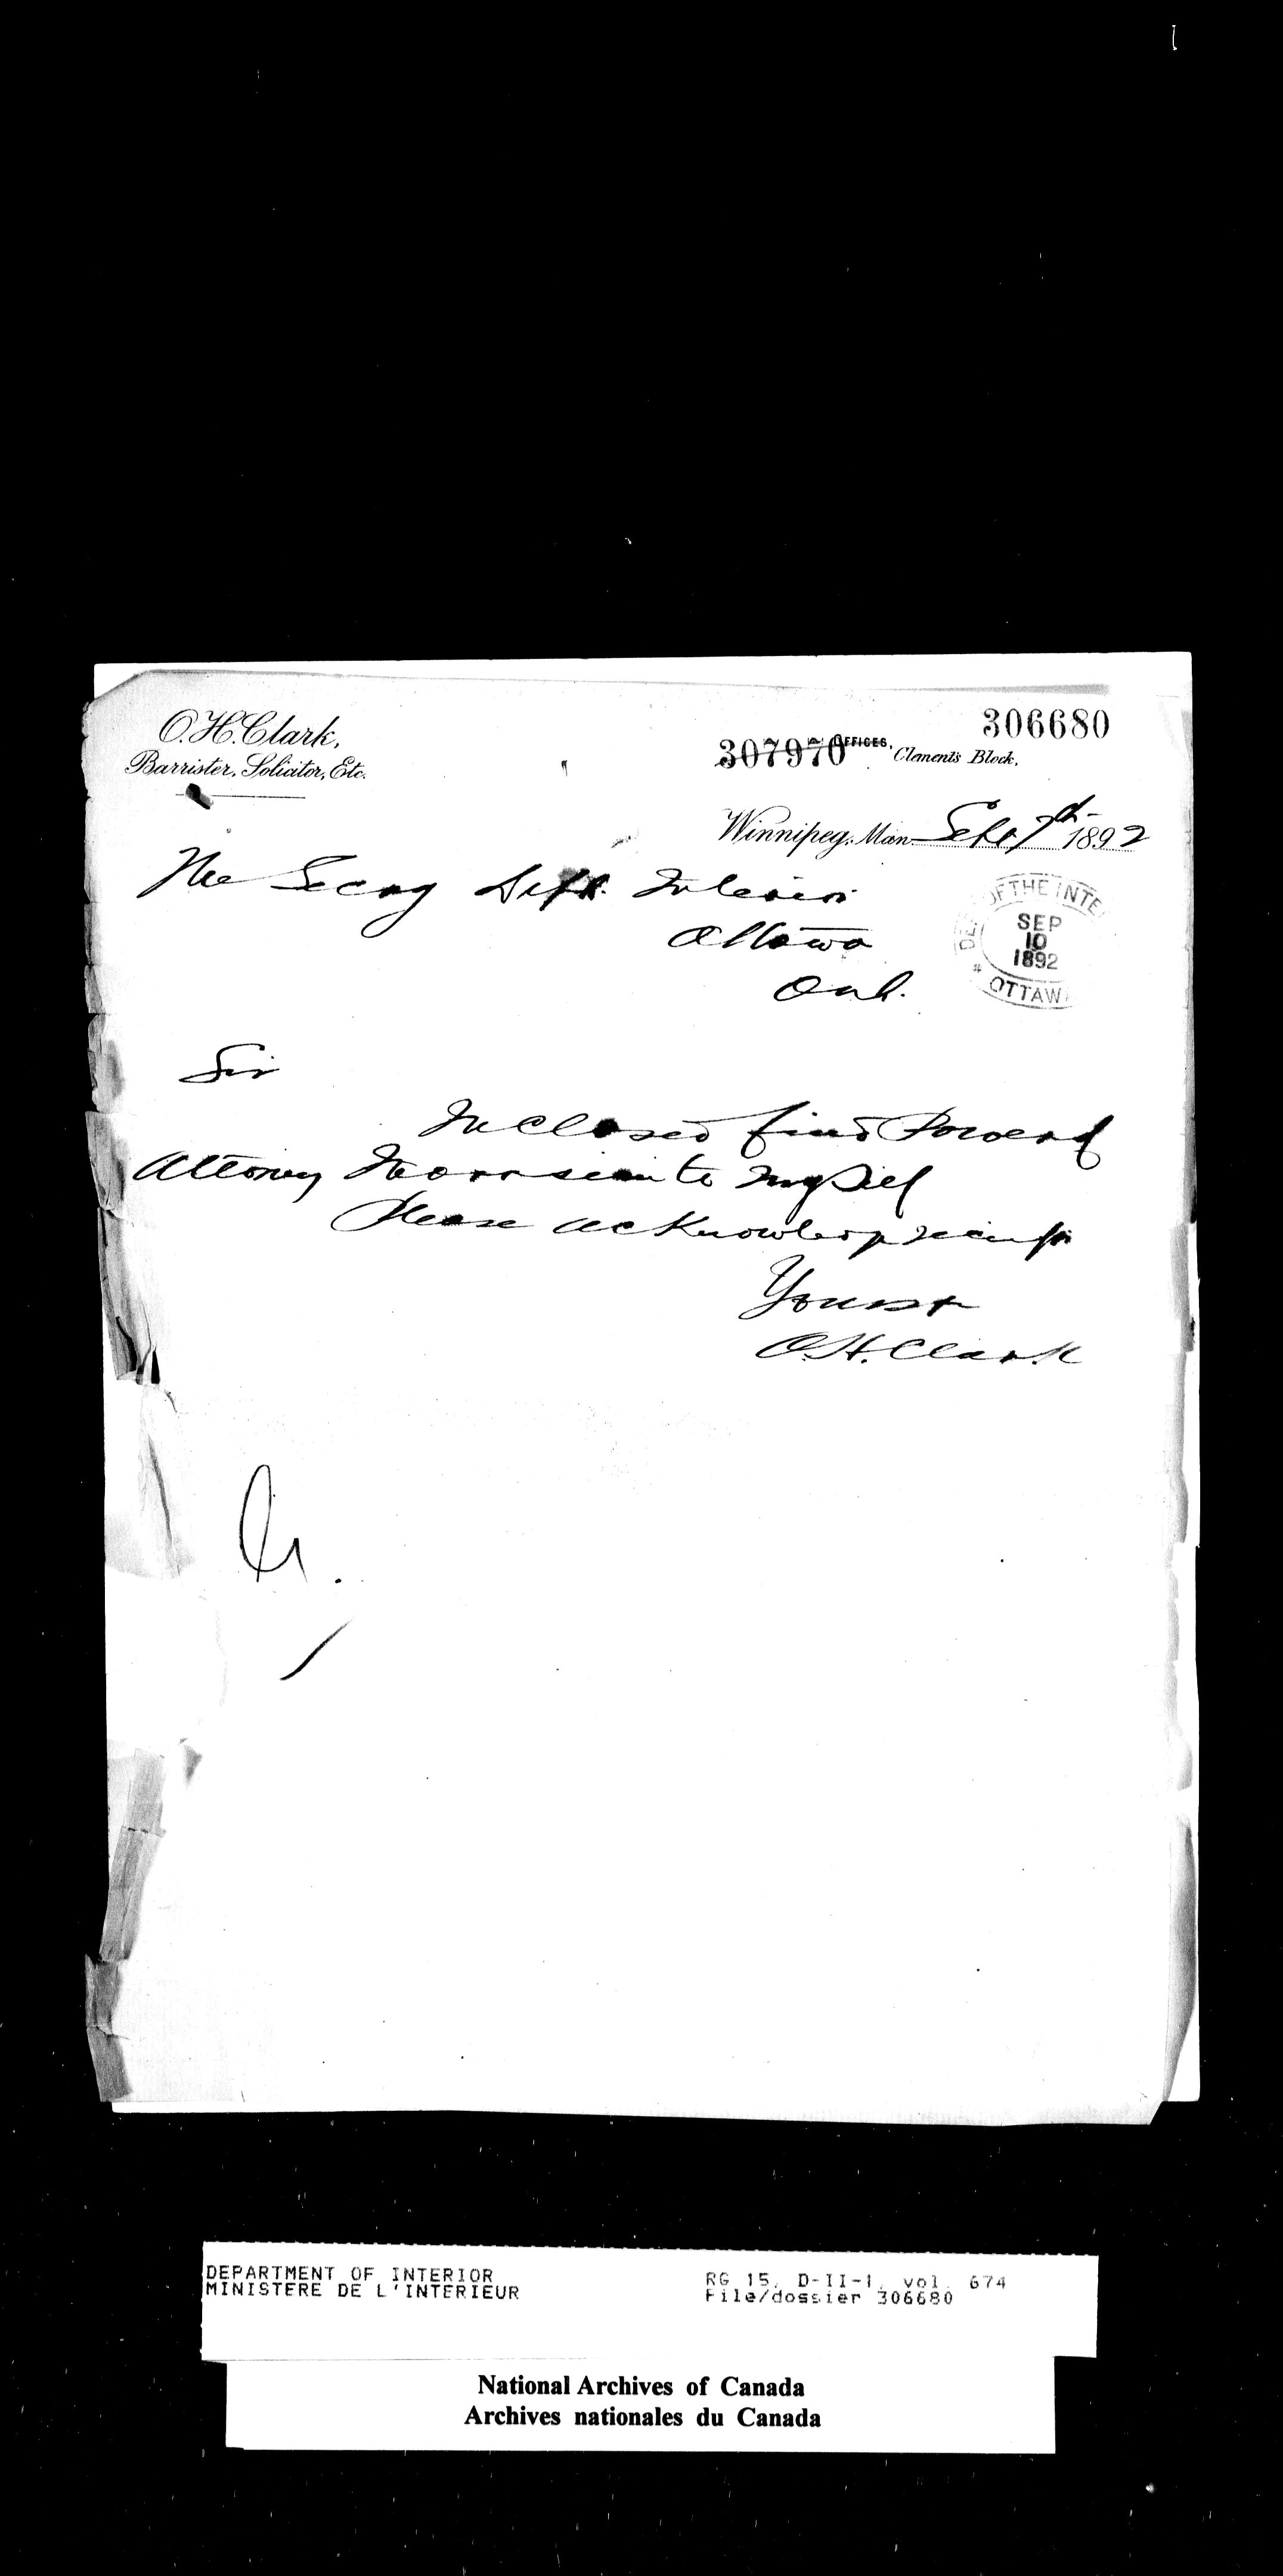 O.H. Clark,
Barrister, Solicitor, Etc.
306680
307970
OFFICES,
Clements Block,
Winnipeg, Man. Sept 7th 1892
The Secry Dept. Interior
Ottawa
Ont.
DEPT OF THE INTE
SEP
10
1892
* OTTAWA
Sir
Inclosed find Power of
Attorney to myself
Please acknowledge
Yours
O.H. Clark
DEPARTMENT OF INTERIOR
MINISTERE DE L'INTERIEUR
RG 15, D-II-1, vol. 674
File/dossier 306680
National Archives of Canada
Archives nationales du Canada